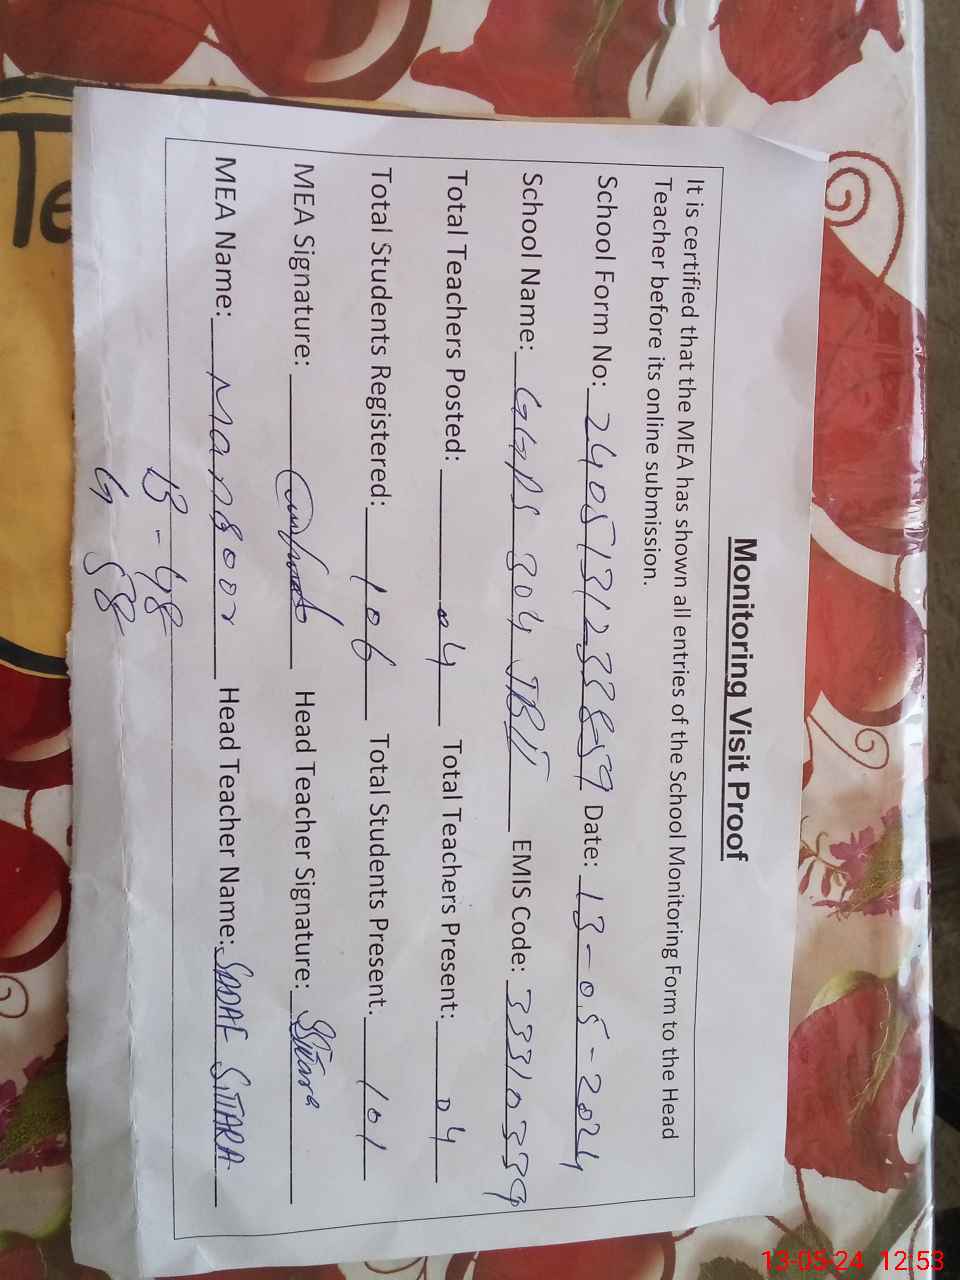 Monitoring Visit Proof
It is certified that the MEA has shown all entries of the School Monitoring Form to the Head
Teacher before its online submission.
School Form No: 24051312338459 Date: 13-05-2024
School Name: GGPS 304 JBII EMIS Code: 33310339
Total Teachers Posted: 04 Total Teachers Present: 04
Total Students Registered: 106 Total Students Present. 101
MEA Signature: Head Teacher Signature: SSitara
MEA Name: Manzoor Head Teacher Name: SADAF SITTARA
B - 48
G 58
Te
13-05-24 12:53